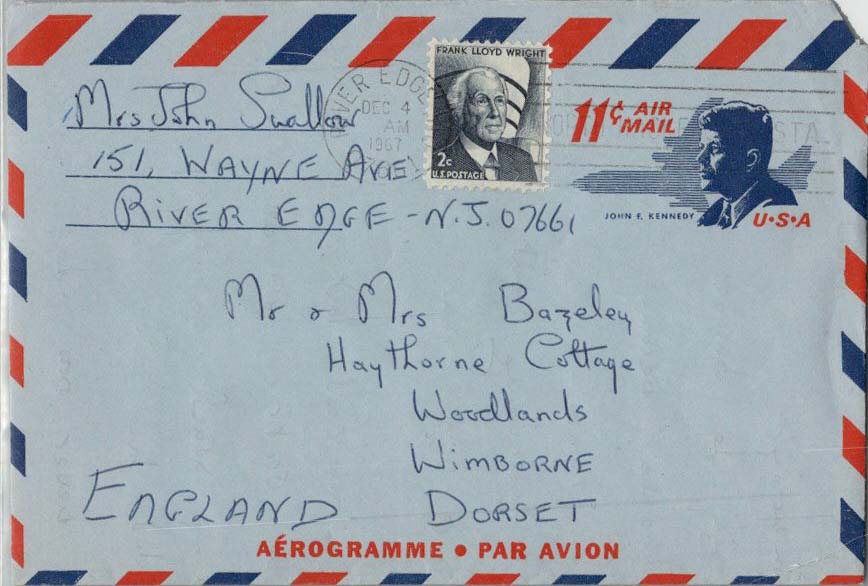 Mrs John Swallow
151, WAYNE AVE
RIVER EDGE - N.J. 07661
RIVER EDGE
DEC 4
AM
1967
FRANK LLOYD WRIGHT
2c
U.S. POSTAGE
11¢ AIR MAIL
JOHN F. KENNEDY
U·S·A
Mr & Mrs Bazeley
Haythorne Cottage
Woodlands
WIMBORNE
DORSET
ENGLAND
AÉROGRAMME • PAR AVION